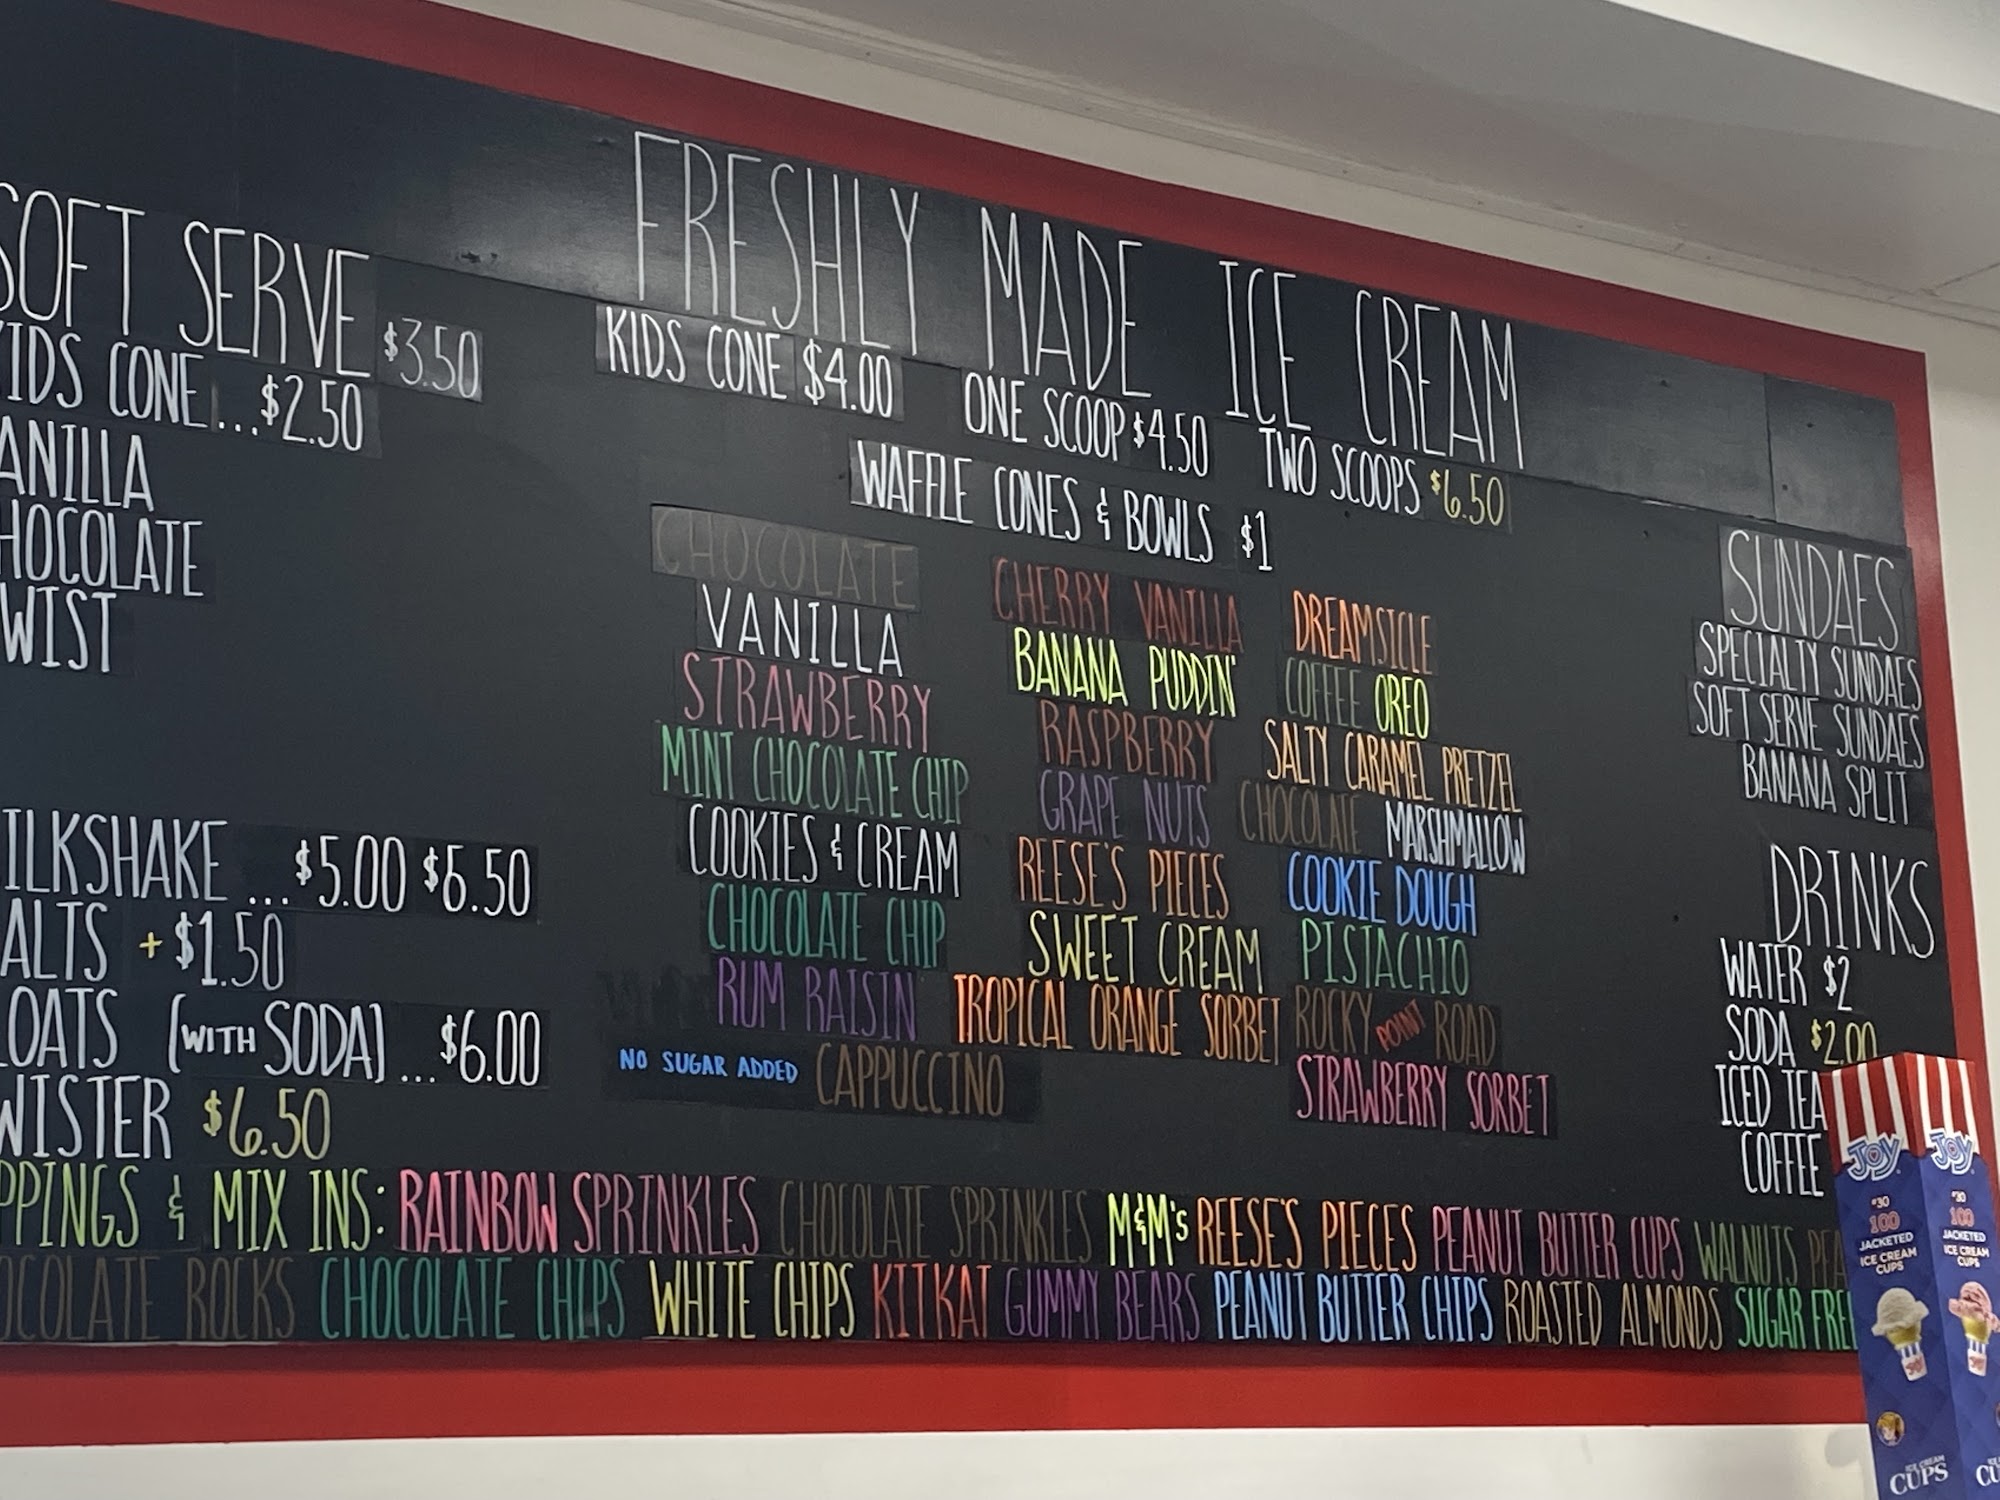 SOFT SERVE $3.50
KIDS CONE...$2.50
VANILLA
CHOCOLATE
TWIST
MILKSHAKE ... $5.00 $6.50
MALTS + $1.50
FLOATS (WITH SODA) ... $6.00
TWISTER $6.50
FRESHLY MADE ICE CREAM
KIDS CONE $4.00
ONE SCOOP $4.50
TWO SCOOPS $6.50
WAFFLE CONES & BOWLS $1
CHOCOLATE
VANILLA
STRAWBERRY
MINT CHOCOLATE CHIP
COOKIES & CREAM
CHOCOLATE CHIP
RUM RAISIN
NO SUGAR ADDED CAPPUCCINO
CHERRY VANILLA
BANANA PUDDIN'
RASPBERRY
GRAPE NUTS
REESE'S PIECES
SWEET CREAM
TROPICAL ORANGE SORBET
DREAMSICLE
COFFEE OREO
SALTY CARAMEL PRETZEL
CHOCOLATE MARSHMALLOW
COOKIE DOUGH
PISTACHIO
ROCKY POINT ROAD
STRAWBERRY SORBET
SUNDAES
SPECIALTY SUNDAES
SOFT SERVE SUNDAES
BANANA SPLIT
DRINKS
WATER $2
SODA $2.00
ICED TEA
COFFEE
PPINGS & MIX INS: RAINBOW SPRINKLES CHOCOLATE SPRINKLES M&M's REESE'S PIECES PEANUT BUTTER CUPS WALNUTS PEA
OCOLATE ROCKS CHOCOLATE CHIPS WHITE CHIPS KITKAT GUMMY BEARS PEANUT BUTTER CHIPS ROASTED ALMONDS SUGAR FREE
JOY
#30
100
JACKETED
ICE CREAM
CUPS
ICE CREAM
CUPS
JOY
#30
100
JACKETED
ICE CREAM
CUPS